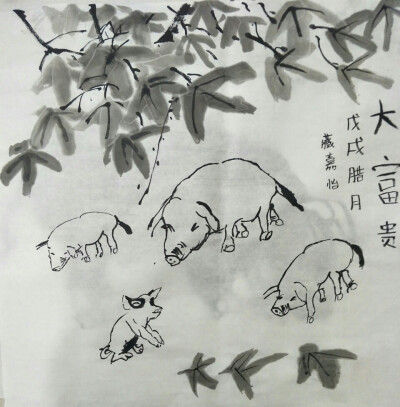 大富贵
戊戌腊月
臧嘉怡